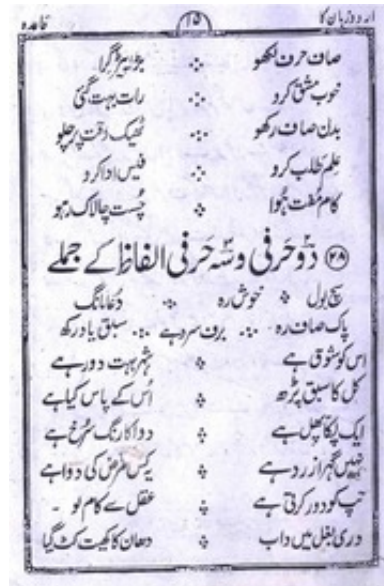 اردو زبان کا ۱۵ قاعدہ
صاف حرف لکھو ۞ بڑا پیڑ گرا
خوب مشق کرو ۞ رات بہت گئی
بدن صاف رکھو ۞ ٹھیک وقت پر چلو
علم طلب کرو ۞ فیس ادا کرو
کام مفت ہوا ۞ چست چالاک رہو
۲۸ دو حرفی و سہ حرفی الفاظ کے جملے
سچ بول ۞ خوش رہ ۞ دعا مانگ
پاک صاف رہ ۞ برف سرد ہے ۞ سبق یاد رکھ
اس کو شوق ہے ۞ شہر بہت دور ہے
کل کا سبق پڑھ ۞ اُس کے پاس کیا ہے
ایک پکا پھل ہے ۞ دوا کا رنگ سرخ ہے
نہیں گہرا زرد ہے ۞ کس مرض کی دوا ہے
تپ کو دور کرتی ہے ۞ عقل سے کام لو ۔
دری بغل میں داب ۞ دھان کا کھیت کٹ گیا